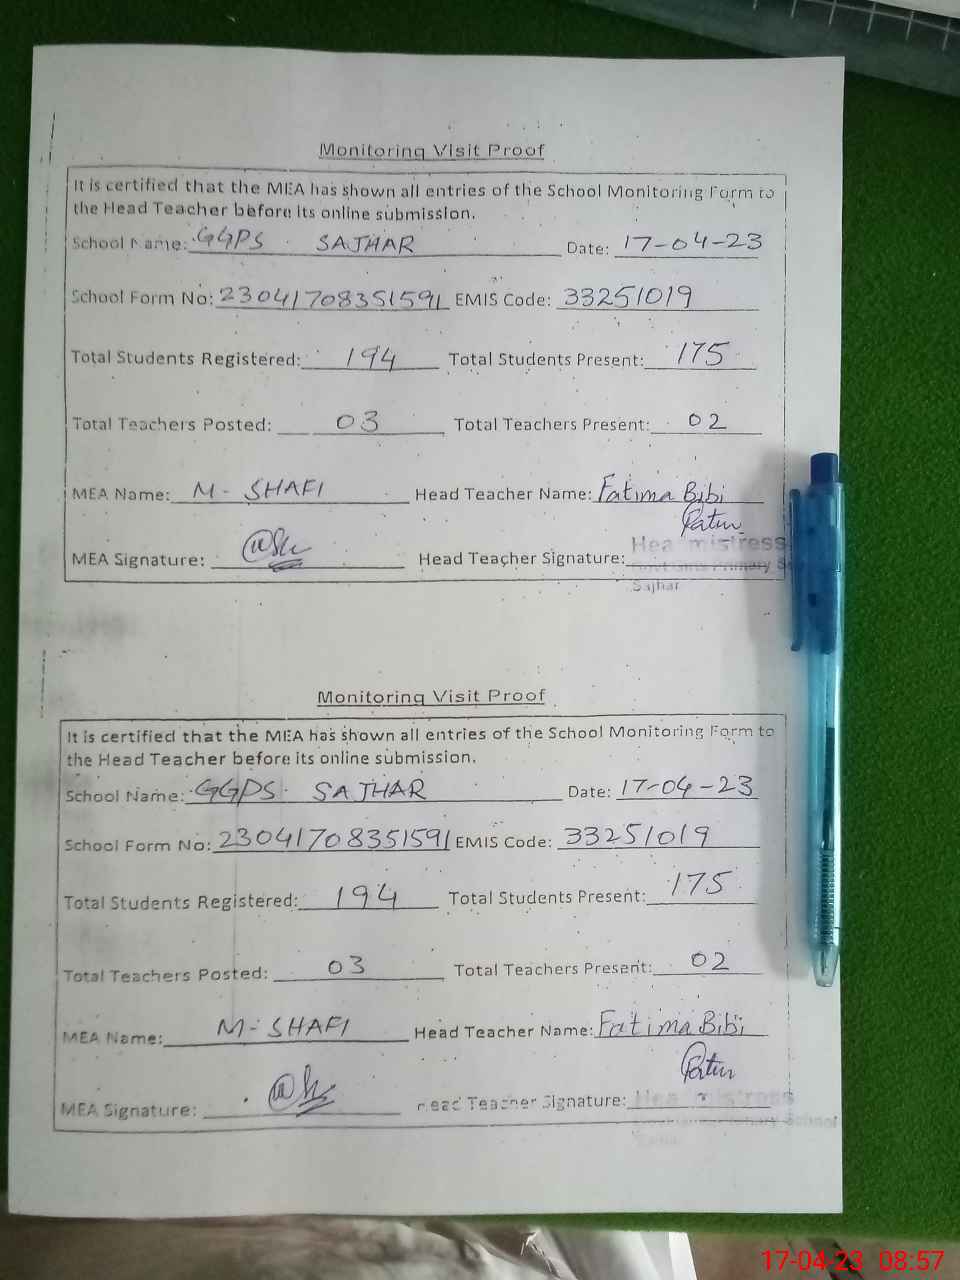 Monitoring Visit Proof
It is certified that the MEA has shown all entries of the School Monitoring Form to
the Head Teacher before its online submission.
School Name: GGPS SAJHAR Date: 17-04-23
School Form No: 23041708351591 EMIS Code: 33251019
Total Students Registered: 194 Total Students Present: 175
Total Teachers Posted: 03 Total Teachers Present: 02
MEA Name: M- SHAFI Head Teacher Name: Fatima Bibi
MEA Signature: Head Teacher Signature:
Headmistress
Govt Girls Primary
Sajhar
Monitoring Visit Proof
It is certified that the MEA has shown all entries of the School Monitoring Form to
the Head Teacher before its online submission.
School Name: GGPS SAJHAR Date: 17-04-23
School Form No: 23041708351591 EMIS Code: 33251019
Total Students Registered: 194 Total Students Present: 175
Total Teachers Posted: 03 Total Teachers Present: 02
MEA Name: M- SHAFI Head Teacher Name: Fatima Bibi
MEA Signature: Head Teacher Signature:
Headmistress
Primary School
17-04-23 08:57